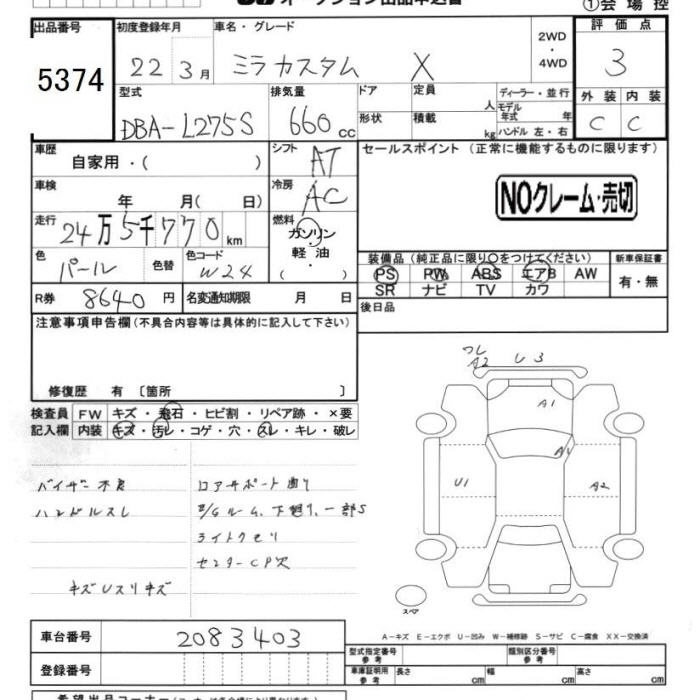 ①会場控
出品番号
5374
初度登録年月
22 3月
車名・グレード
ミラカスタム X
2WD
・
4WD
評価点
3
外装 内装
C C
型式
DBA-L275S
排気量
660cc
ドア
形状
定員
人
積載
kg
ディーラー・並行
モデル年式 年
ハンドル 左・右
車歴
自家用・( )
シフト
AT
セールスポイント(正常に機能するものに限ります)
NOクレーム・売切
車検
年 月( 日)
冷房
AC
走行
24万5千770km
燃料
ガソリン
軽油
色
パール
色替
色コード
W24
装備品(純正品に限り○をつけてください)
PS PW ABS エアB AW
SR ナビ TV カワ
新車保証書
有・無
R券
8640円
名変通知期限 月 日
後日品
注意事項申告欄(不具合内容等は具体的に記入して下さい)
修復歴 有 〔箇所 〕
検査員
記入欄
FW キズ・飛石・ヒビ割・リペア跡・×要
内装 キズ・汚レ・コゲ・穴・スレ・キレ・破レ
バイザー不良
ハンドルスレ
キズUスリキズ
ロアサポート曲り
E/Gルーム、下廻り、一部S
ライトクモリ
センターCP欠
ワレ
A2
U3
A1
A1
U1
A2
スペア
A-キズ E-エクボ U-凹み W-補修跡 S-サビ C-腐食 XX-交換済
車台番号
2083403
登録番号
型式指定番号
参考
類別区分番号
参考
車庫証明用
参考
長さ cm
幅 cm
高さ cm